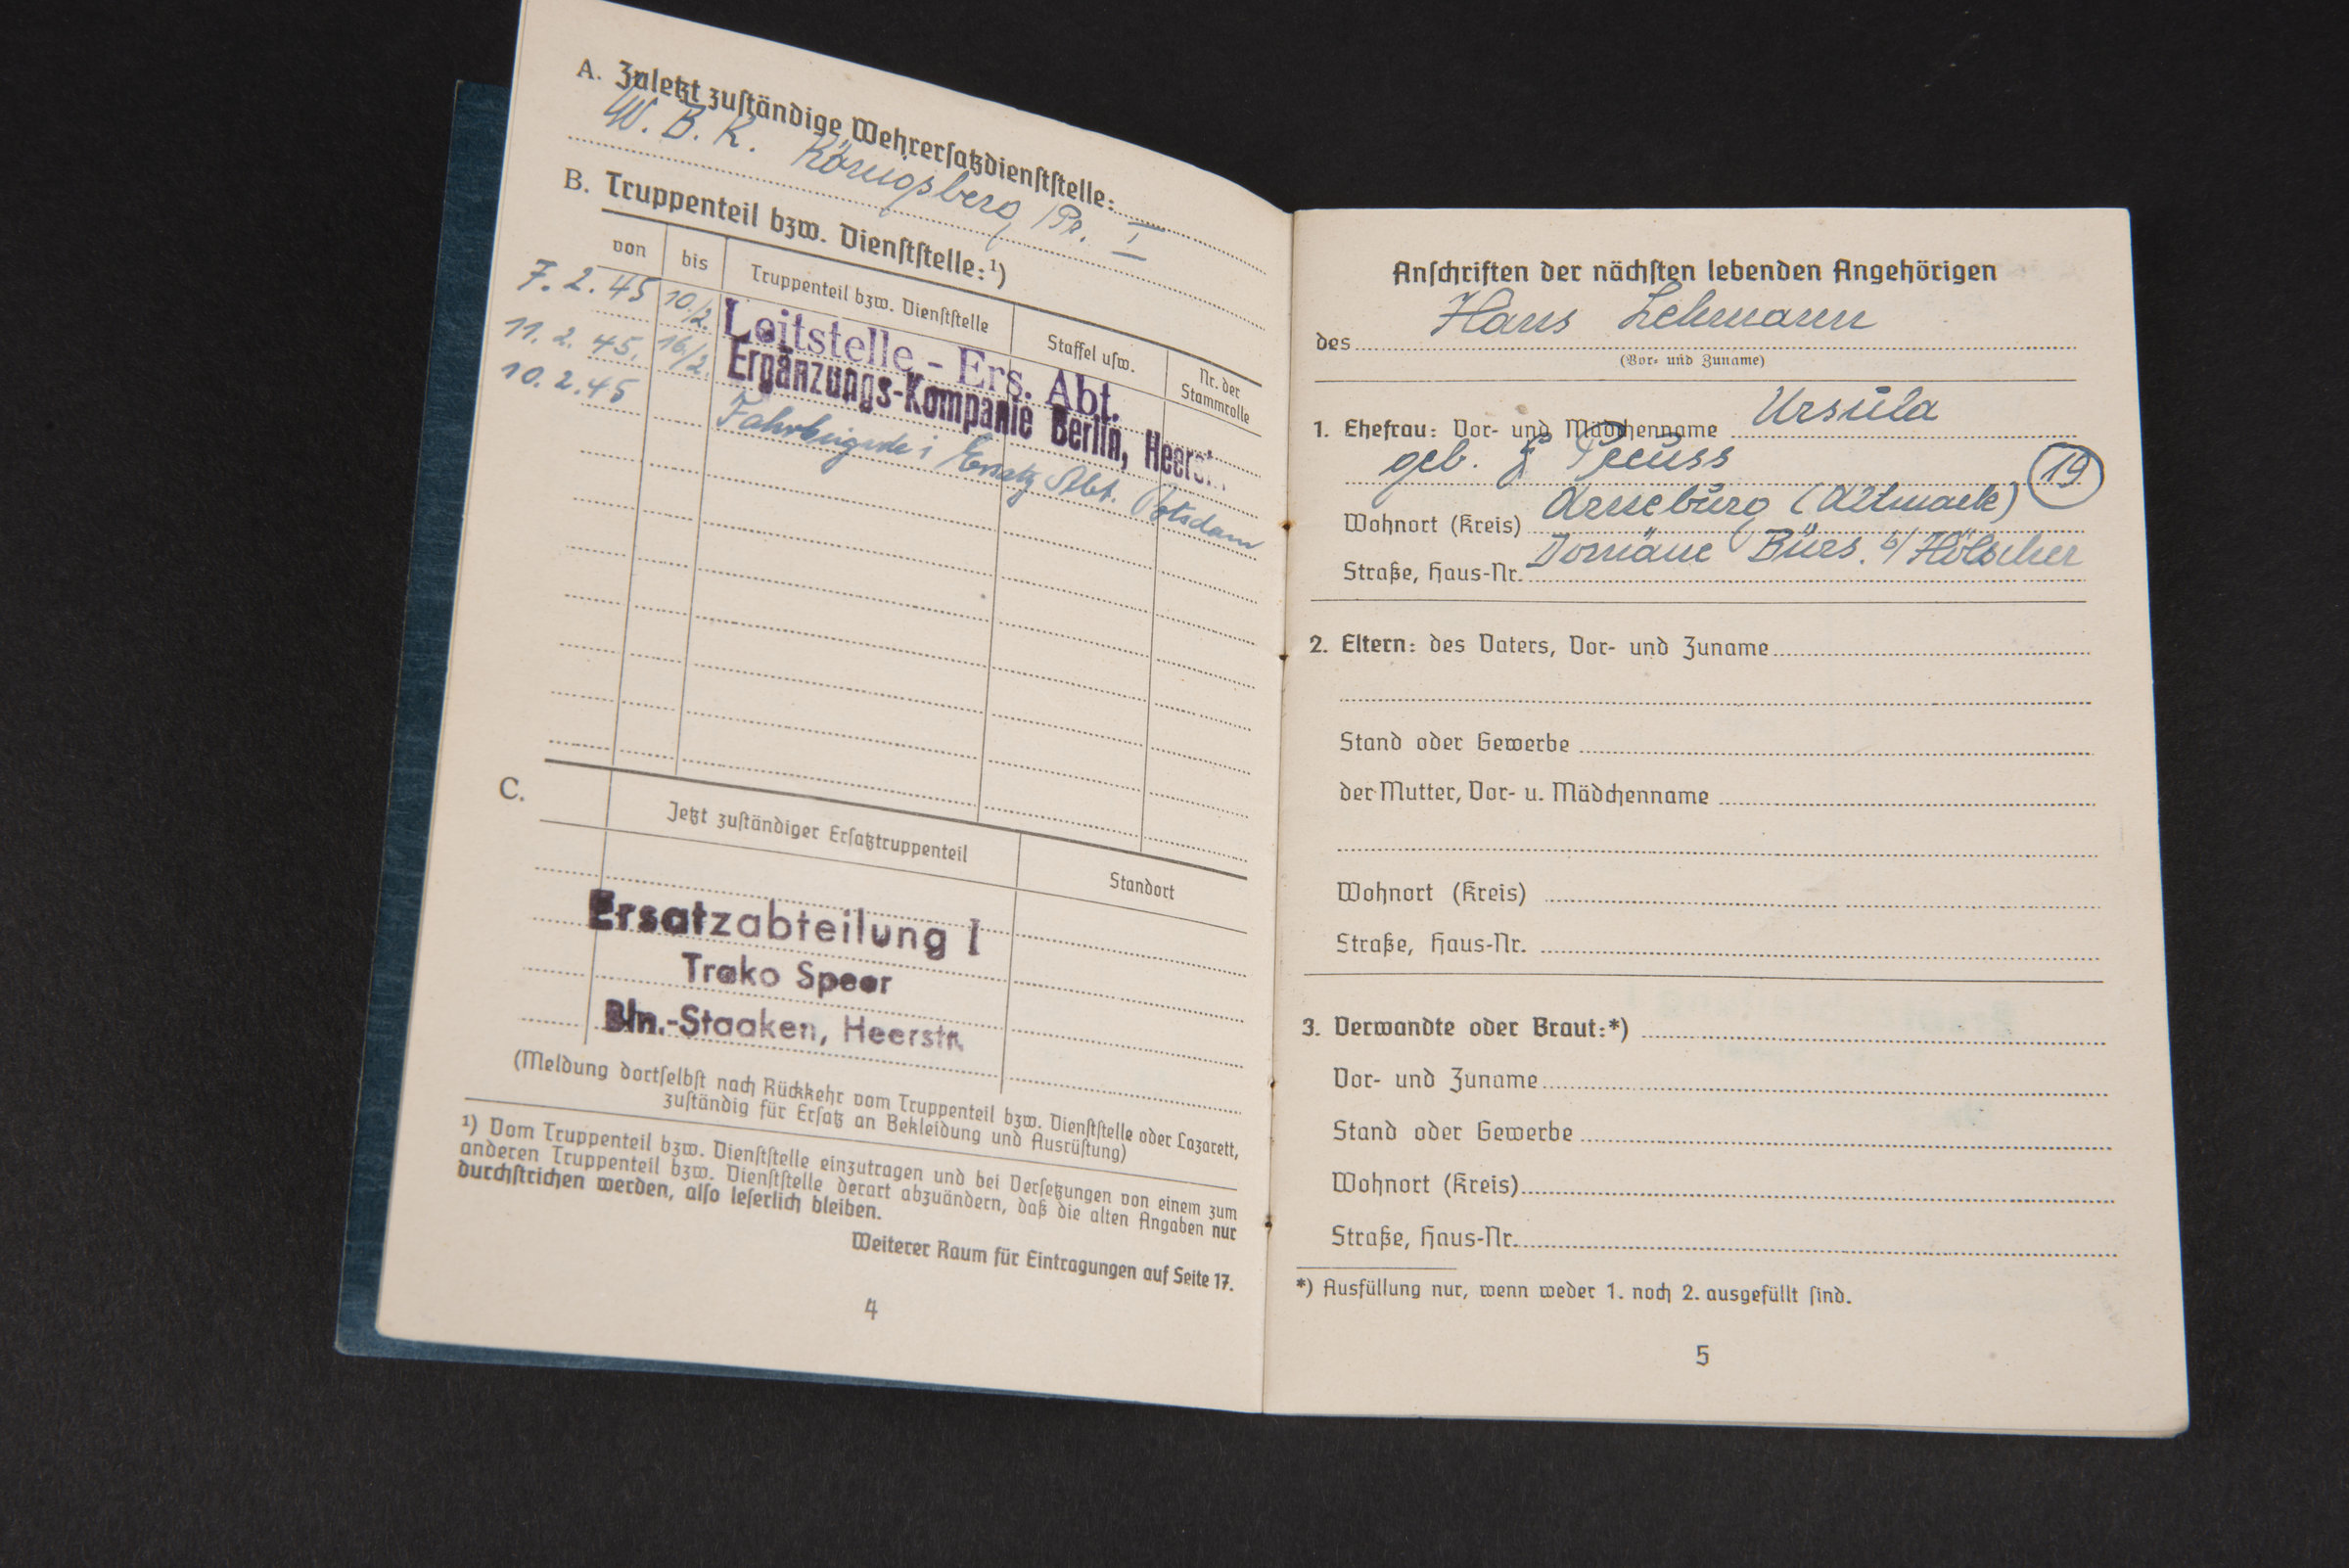 A. Zuletzt zuständige Wehrersatzdienststelle:
W. B. K. Königsberg /Pr. I
B. Truppenteil bzw. Dienststelle:¹)
von bis Truppenteil bzw. Dienststelle Staffel usw. Nr. der Stammrolle
7. 2. 45 10/2. Leitstelle - Ers. Abt.
11. 2. 45. 16/2. Ergänzungs-Kompanie Berlin, Heers
10. 2. 45 Ersatz Abt. Potsdam
C.
Jetzt zuständiger Ersatztruppenteil Standort
Ersatzabteilung I
Trako Speer
Bln.-Staaken, Heerstr.
(Meldung dortselbst nach Rückkehr vom Truppenteil bzw. Dienststelle oder Lazarett,
zuständig für Ersatz an Bekleidung und Ausrüstung)
¹) Vom Truppenteil bzw. Dienststelle einzutragen und bei Versetzungen von einem zum
anderen Truppenteil bzw. Dienststelle derart abzuändern, daß die alten Angaben nur
durchstrichen werden, also leserlich bleiben.
Weiterer Raum für Eintragungen auf Seite 17.
4
Anschriften der nächsten lebenden Angehörigen
des Hans Lehmann
(Vor- und Zuname)
1. Ehefrau: Vor- und Mädchenname Ursula
geb. Preuss
19
Wohnort (Kreis) Arneburg (Altmark)
Straße, Haus-Nr. Domäne Bürs. b/ Hölscher
2. Eltern: des Vaters, Vor- und Zuname
Stand oder Gewerbe
der Mutter, Vor- u. Mädchenname
Wohnort (Kreis)
Straße, Haus-Nr.
3. Verwandte oder Braut:*)
Vor- und Zuname
Stand oder Gewerbe
Wohnort (Kreis)
Straße, Haus-Nr.
*) Ausfüllung nur, wenn weder 1. noch 2. ausgefüllt sind.
5